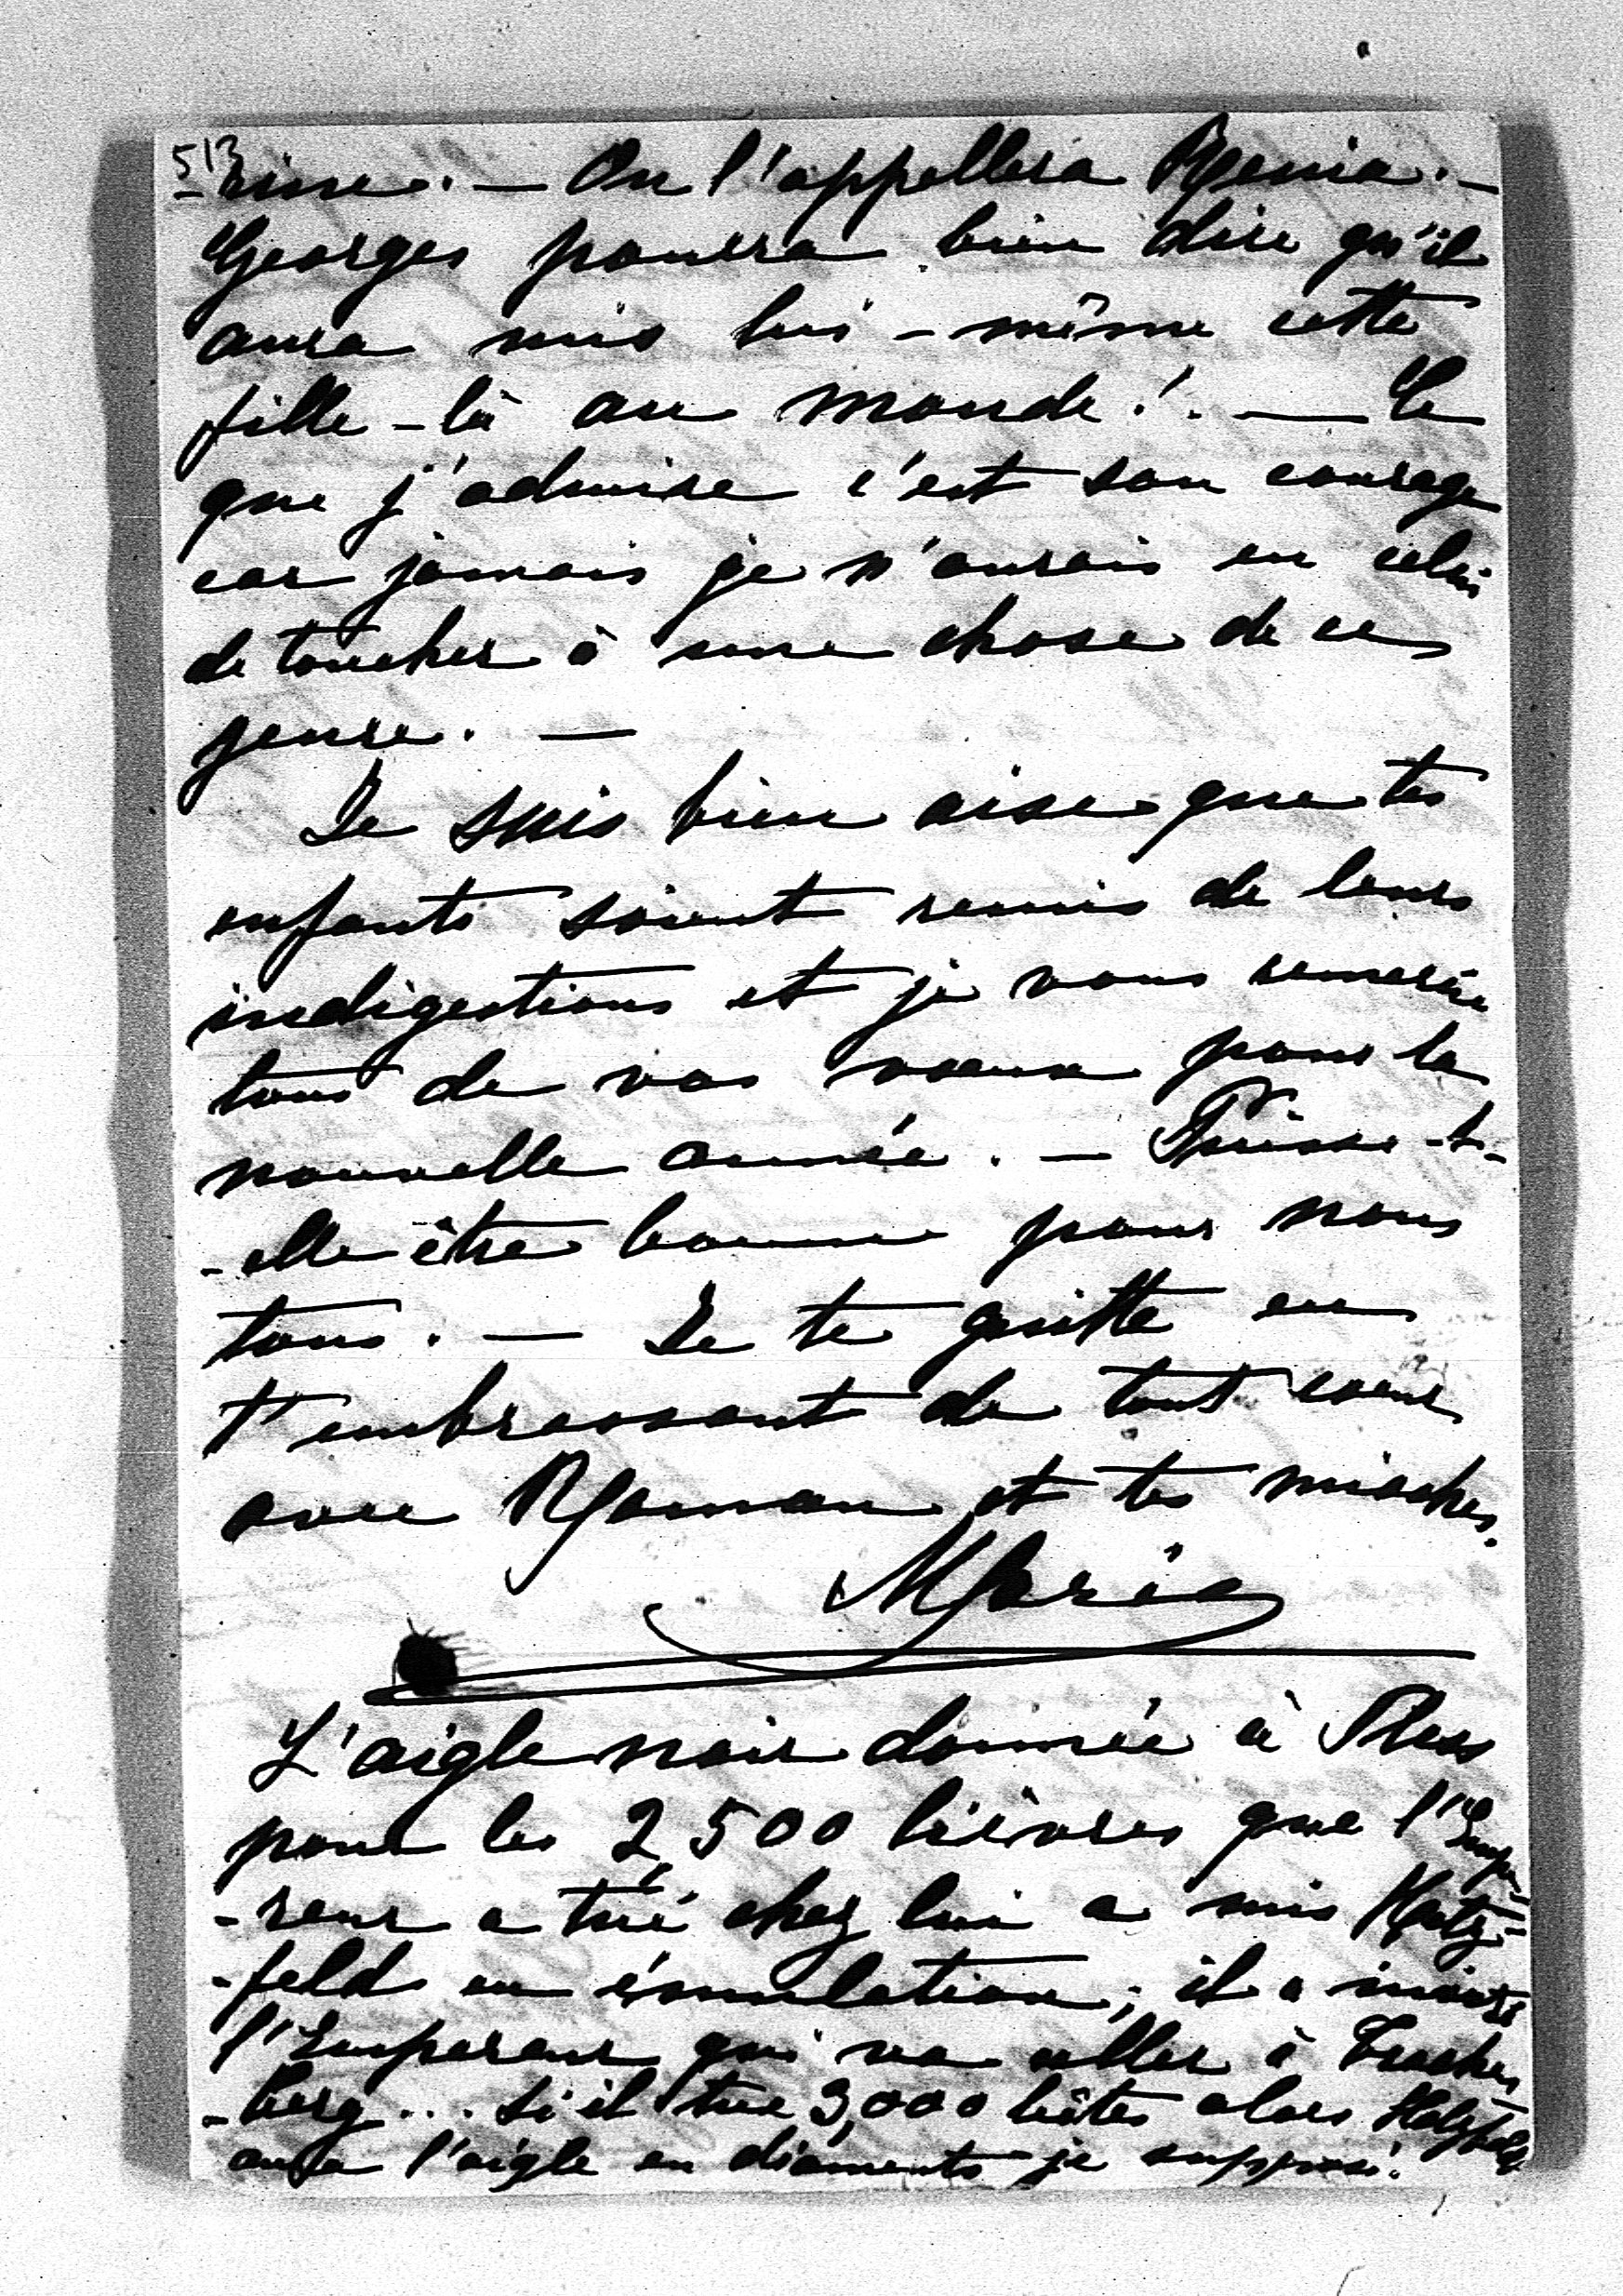 513
-rine. — On l'appellera Renia. —
Georges pourra bien dire qu'il
aura mis lui-même cette
fille-là au monde! — Ce
que j'admire c'est son courage
car jamais je n'aurais eu celui
de toucher à une chose de ce
genre. —
Je suis bien aise que tes
enfants soient remis de leurs
indigestions et je vous remercie
tous de vos vœux pour la
nouvelle année. — Puisse-t-
-elle être bonne pour nous
tous. — Je te quitte en
t'embrassant de tout cœur
avec Roman et tes mioches.
Marie
L'aigle noir donnée à Pless
pour les 2,500 lièvres que l'Empe=
-reur a tué chez lui a mis Hatz=
-feld en émulation; il a invité
l'Empereur qui va aller à Trachen
-berg... si il tue 3,000 bêtes alors Hatzfeld
aura l'aigle en diamants je suppose.